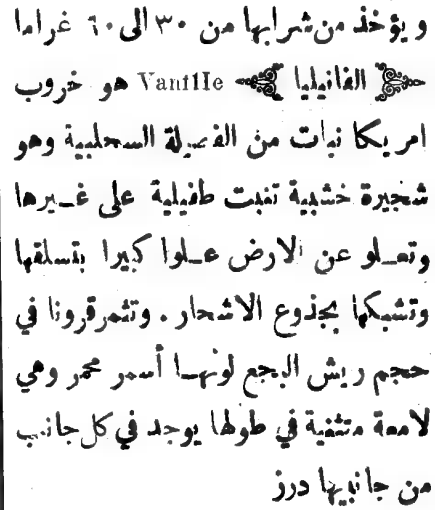 ويؤخذ من شرابها من ٣٠ الى ٦٠ غراما
الفانيليا Vanille هو خروب
امريكا نبات من الفصيلة السحلبية وهو
شجيرة خشبية تنبت طفيلية على غيرها
وتعلو عن الارض علوا كبيرا بتسلقها
وتشبكها بجذوع الاشجار . وتثمر قرونا في
حجم ريش البجع لونها أسمر محمر وهي
لامعة منثنية في طولها يوجد في كل جانب
من جانبيها درز